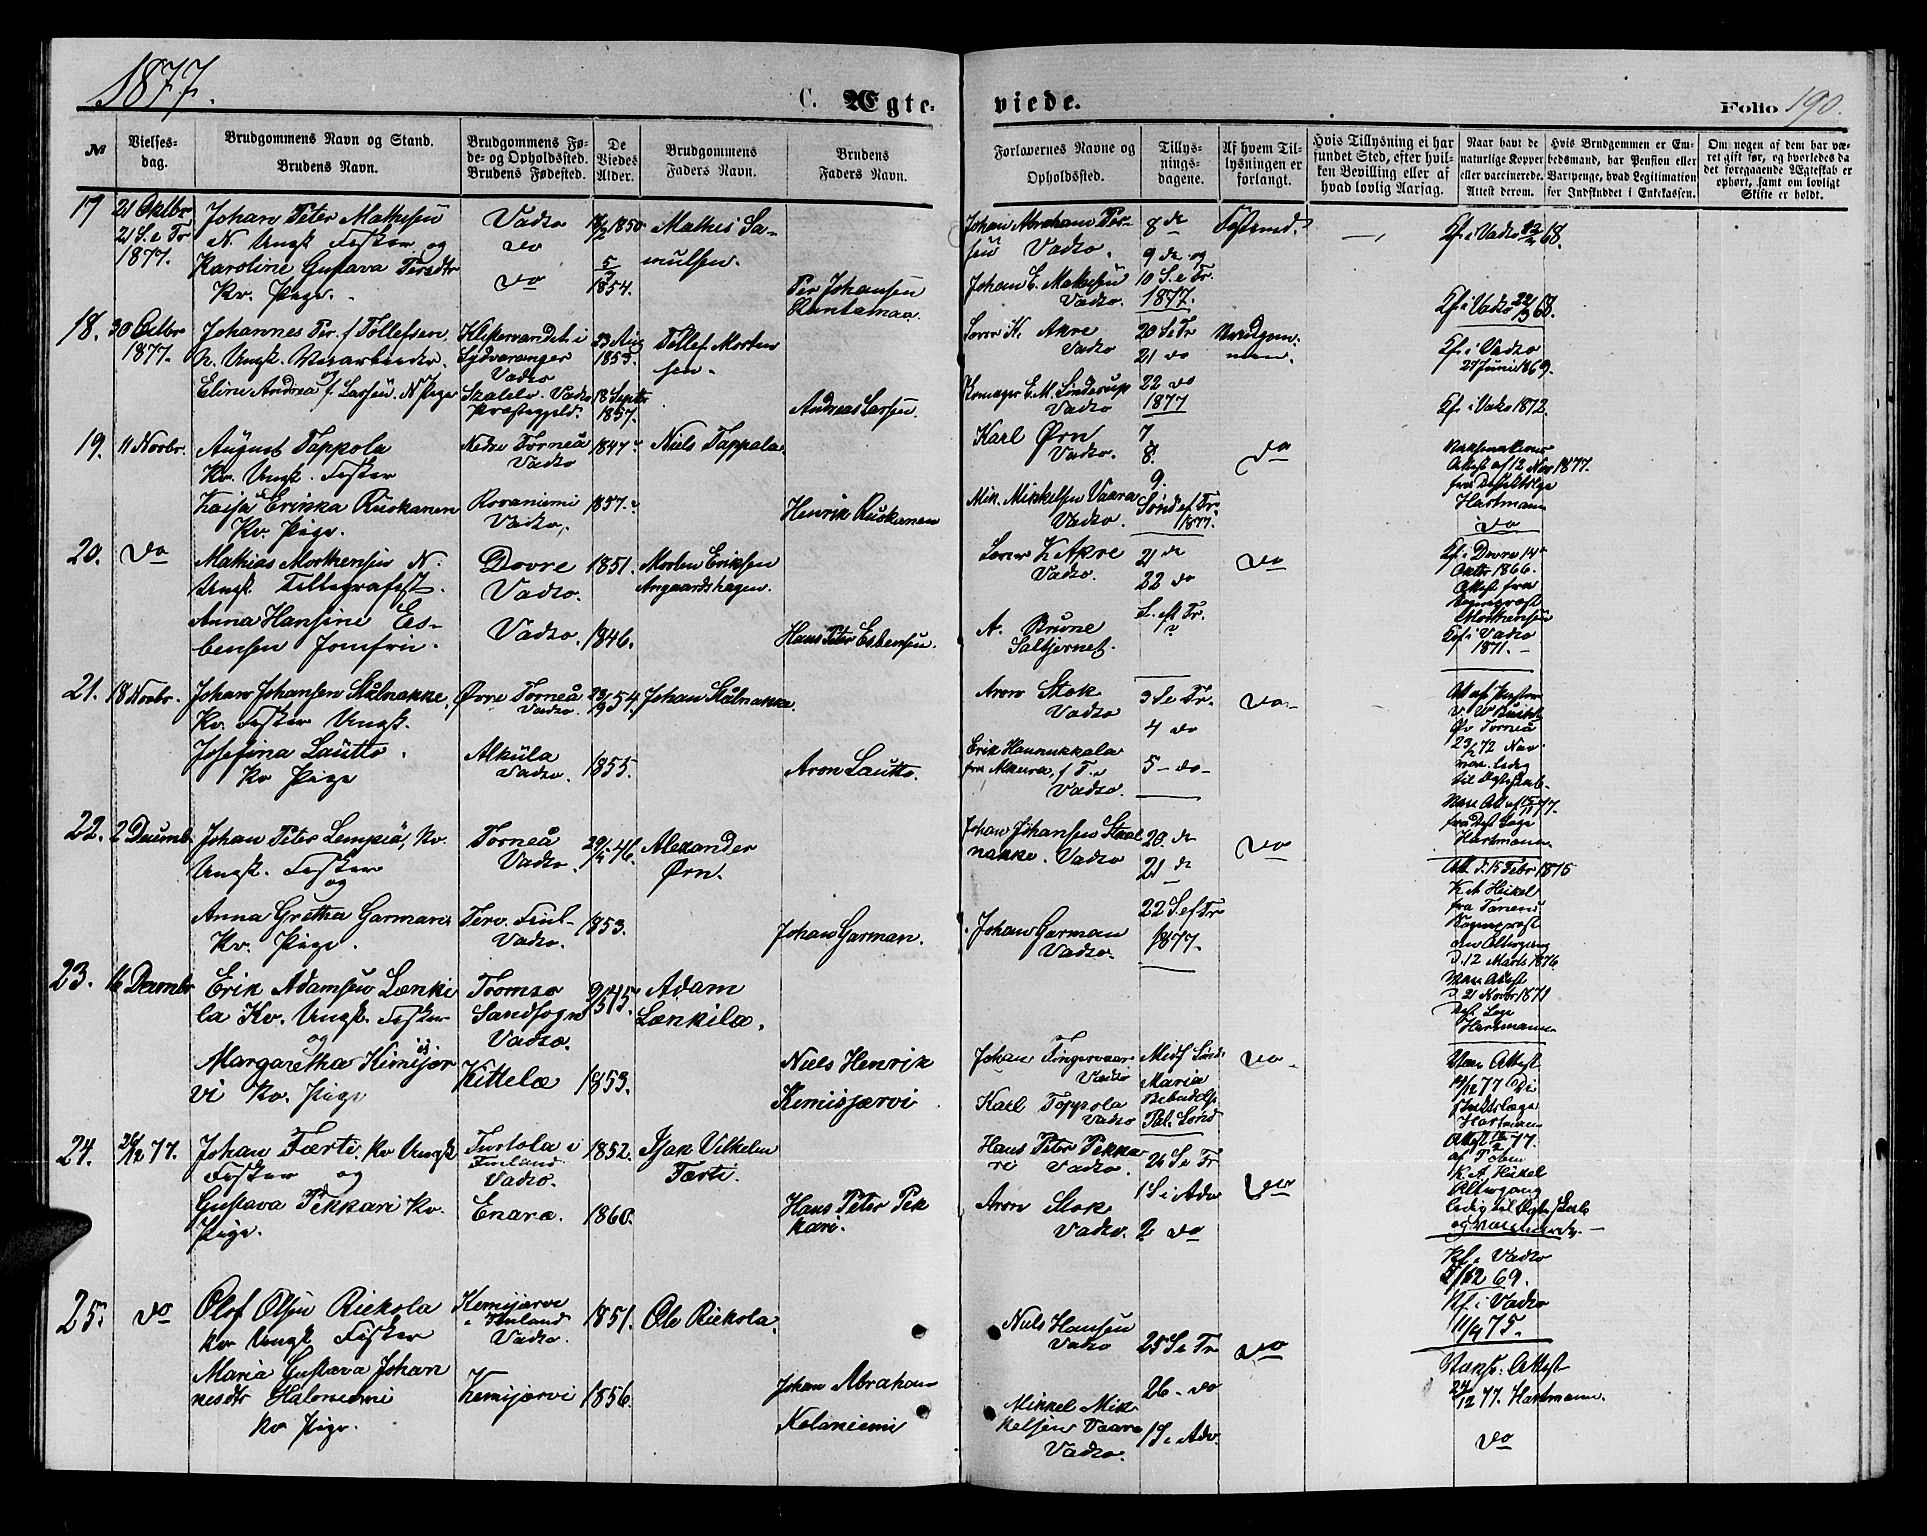 1877.
C. Ægte-
viede.
Folio 190.
№
Vielses-
dag.
Brudgommens Navn og Stand.
Brudens Navn.
Brudgommens Fø-
de- og Opholdssted.
Brudens Fødested.
De
Viedes
Alder.
Brudgommens
Faders Navn.
Brudens
Faders Navn.
Forlovernes Navne og
Opholdssted.
Tillys-
nings-
dagene.
Af hvem Til-
lysningen er
forlangt.
Hvis Tillysning ei har
fundet Sted, efter hvil-
ken Bevilling eller af
hvad lovlig Aarsag.
Naar havt de
naturlige Kopper
eller vaccinerede.
Attest derom.
Hvis Brudgommen er Em-
bedsmand, har Pension eller
Vartpenge, hvad Legitimation
for Indskuddet i Enkekassen.
Om nogen af dem har væ-
ret gift før, og hvorledes da
det foregaaende Ægteskab er
ophørt, samt om lovligt
Skifte er holdt.
17
21 Oktbr
21 S. e Tr
1877.
Johan Peter Mathisen
N. Ungk. Fisker og
Karoline Gustava Persdtr
Kv. Pige.
Vadsø
do
do
1850
1854.
Mathis Sa-
mulsen.
Per Johansen
Rantamaa.
Johan Abraham Per-
sen Vadsø.
Johan E. Mathisen
Vadsø.
8 de
9 de og
10 S. e Tr.
1877.
Vadsø 68.
Vadsø 68.
18.
20 Octbr
1877.
Johannes Per. f Tollefsen
N. Ungk.
og
Elen Andrea f. Larsen. N Pige
i
Sydvaranger
Vadsø
Vadsø
Præstegjeld.
23 Aug
1853.
18 Septbr
1857.
Tollef Morten
sen.
Andreas Larsen.
Soren K. Akre
Vadsø
E. M. Sinderup
Vadsø
20 S e Tr
21 do
22 do
1877
Brudgom-
men.
i Vadsø
27 Juni 1869.
i Vadsø 1872.
19.
11 Novbr.
August Tappola
Kv. Ungk. Fisker
Kaisa Erikka Ruskanen
Kv. Pige.
Nedre Torneå
Vadsø
Rovaniemi
Vadsø.
1847
1857.
Niels Tappala
Henrik Ruskanen
Karl Ørn
Vadsø.
Mik. Mikkelsen Vaara
Vadsø.
7
8.
9.
Sønd ef Tr
1877.
do
Vaksinations
Attest af 12 Nov 1877.
fra Distriktslæge
Hartmann
do
20.
do
Mathias Morthensen N.
Ungk. Tellegrafist.
Anna Hansine Es-
bensen Jomfru.
Dovre
Vadsø.
Vadsø.
1851.
1846.
Morten Eriksen
Angaardshagen.
Hans Peter Esbensen.
Soren K Akre
Vadsø.
A. Brune
Saltjernet.
21 de
22 do
S. eft Tr.
do
i Dovre 14
Oktbr 1866.
Attest fra
Sogneprest
Morthensen
i Vadsø
1871.
21.
18 Novbr.
Johan Johansen Stålnakke,
Kv. Fisker Ungk.
Josefina Lautto.
Kv Pige
Øvre Torneå
Vadsø.
Alkula
Vadsø.
54.
1855.
Johan Stålnakke.
Aron Lautto.
Aron Stok
Vadsø
Erik Hannukkala
fra Alkura, f T.
Vadsø.
3 S e Tr.
4 do
5 - do -
do
Øv Torneå
ledig
til Ægteskab
fra Dist Læge
Hartmann
22.
2 Decemb.
Johan Peter Lempiä, Kv.
Ungk. Fisker
og
Anna Gretha Garman
Kv. Pige.
Torneå
Vadsø.
Terv. Finl-
Vadsø.
46.
1853.
Alexander
Ørn.
Johan Garman.
Johan Johansen Staal
nakke. Vadsø
Johan Garman
Vadsø.
20. de
21 de
22 S ef Tr
1877.
do
Att. d. 15 Febr 1876
K A Heikel
fra Tanens
Sogneprest
om Altergang
d. 12 Marts 1876
Attest
d. 21 Novbr 1871
Dist Læge
Hartmann
23.
16 Decembr
Erik Adamsen Lænki
la Kv. Ungk. Fisker
og
Margaretha Kimisjær
vi Kv. Pige
Tromsø
Landsogn
Vadsø.
Kittelæ
9/5 45.
1853.
Adam
Lænkila.
Niels Henrik
Kemisjærvi
Johan Fingervaar
Vadsø
Karl Toppola
Vadsø
Midf Sønd
Maria
Bebudelse
Pal. Sønd
do
Attest
11/12 77 Di
striktslæge
Hartmann
24.
26/12 77.
Johan Færti. Kv Ungk
Fisker og
Gustava Pekkari Kv.
Pige.
Turtola i
Finland
Vadsø.
Enara.
1852.
1860.
Isak Vilhelm
Færti.
Hans Peter Pek
kari.
Hans Peter Pekka
ri Vadsø.
Aron Stok
Vadsø.
26 S e Tr
1 S i Adv
2 do
do
K. A. Heikel
Altergang
ledig til Ægteskab
i Vadsø
69.
Kf. i Vadsø
11/9 75.
25.
do
Olof Olsen Riekola
Kv Ungk Fisker
Maria Gustava Johan
nesdtr Halonemi
Kv Pige.
Kemijærvi
i Finland
Vadsø.
Kemijærvi
1851.
1856.
Ole Riekola.
Johan Abraham
Kelaniemi
Niels Hansen
Vadsø
Mikkel Mik
kelsen Vaara
Vadsø.
25 S e Tr
26 - do
1 S. i Adv.
do
Attest
24/12 77. Hartmann.
do